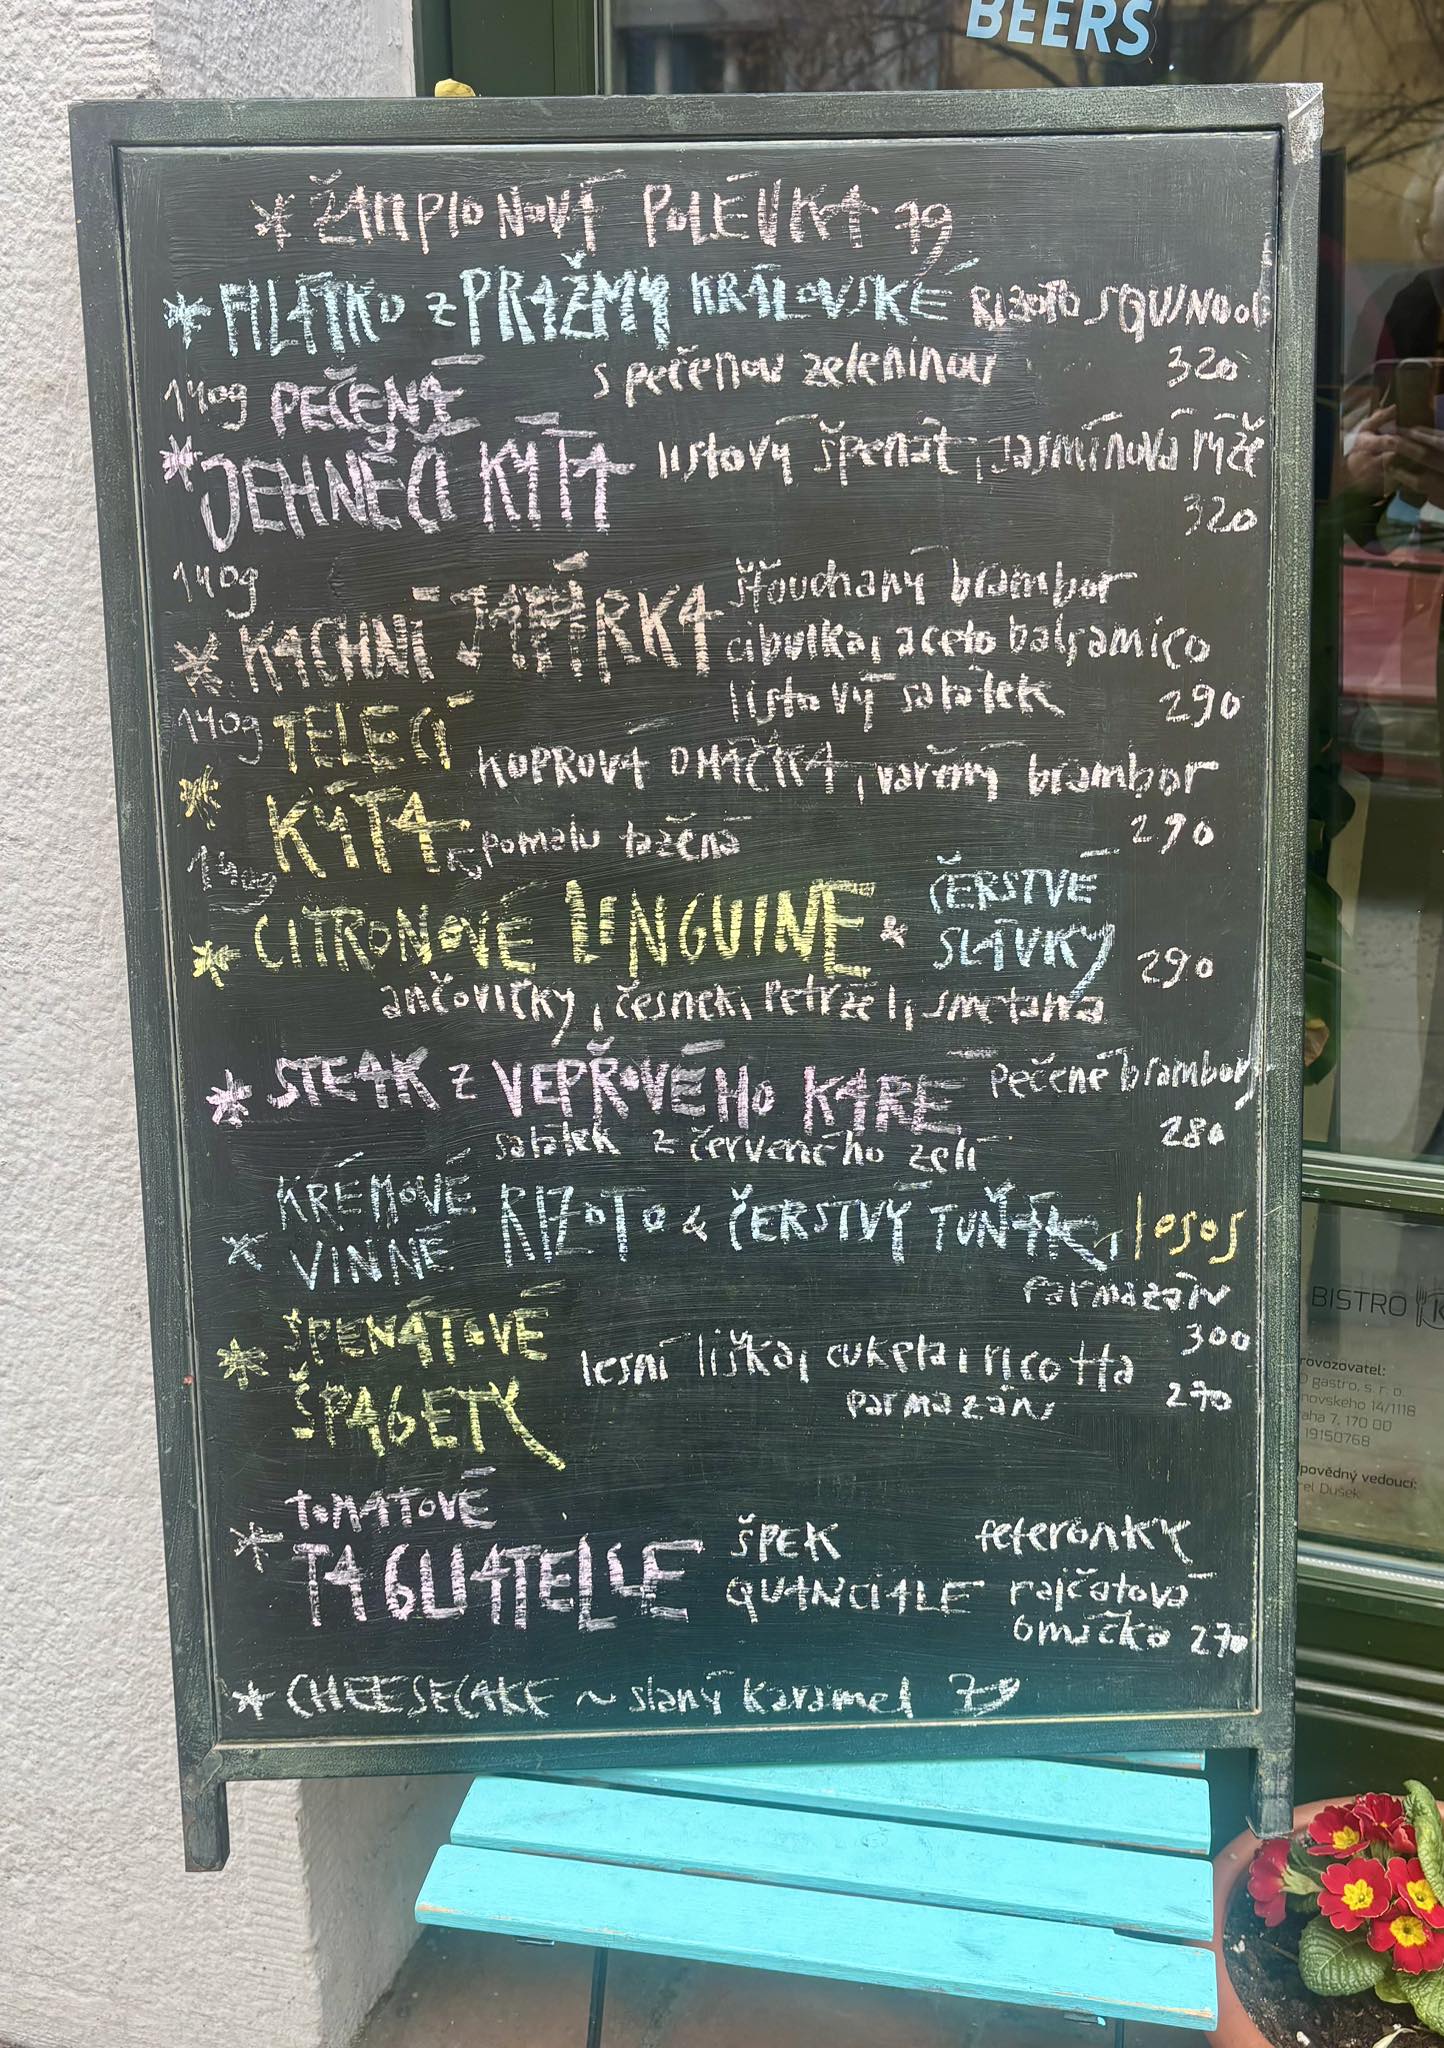 BEERS
* ŽAMPIONOVÁ POLÉVKA 79
* FILÁTKO z PRAŽMY KRÁLOVSKÉ RIZOTO S QUINOOU
140g s pečenou zeleninou 320
PEČENÁ
* JEHNĚČÍ KÝTA listový špenát, jasmínová rýže
320
140g
* KACHNÍ JATÝRKA šťouchaný brambor
cibulka, aceto balsamico
listový salátek 290
140g TELECÍ
* KÝTA KOPROVÁ OMÁČKA, vařený brambor
140g pomalu tažená 290
* CITRONOVÉ LINGUINE & ČERSTVÉ
SLÁVKY 290
ančovičky, česnek, petržel, smetana
* STEAK z VEPŘOVÉHO KARÉ pečené brambory
salátek z červeného zelí 280
KRÉMOVÉ
* VINNÉ RIZOTO & ČERSTVÝ TUŇÁK, losos
parmazán
300
* ŠPENÁTOVÉ
ŠPAGETY lesní liška, cuketa, ricotta
parmazán 270
TOMATOVÉ
* TAGLIATELLE ŠPEK feferonky
QUANCIALE rajčatová
omáčka 270
* CHEESECAKE ~ slaný karamel 79
BISTRO
rovozovatel:
gastro, s. r. o.
novského 14/1118
aha 7, 170 00
19150768
povědný vedoucí:
rel Dušek